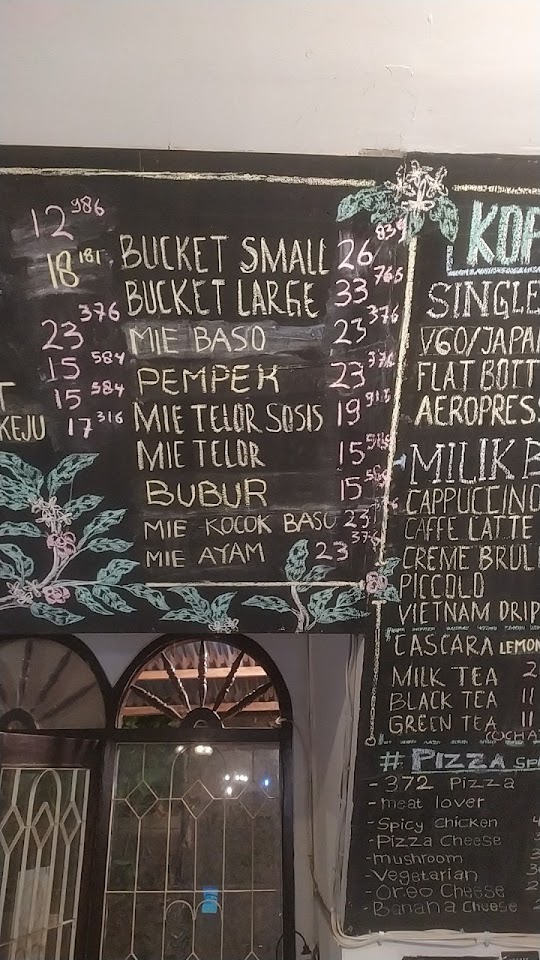 12 986
18 181
23 376
15 584
T 15 584
KEJU 17 316
BUCKET SMALL 26 839
BUCKET LARGE 33 766
MIE BASO 23 376
PEMPEK 23 376
MIE TELOR SOSIS 19
MIE TELOR 15 584
BUBUR 15 584
MIE KOCOK BASO 23
MIE AYAM 23 376
KOP
SINGLE
V60/JAPAN
FLAT BOTT
AEROPRESS
MILIK B
CAPPUCCINO
CAFFE LATTE
CREME BRULE
PICCOLO
VIETNAM DRIP
CASCARA LEMON
MILK TEA 2
BLACK TEA 11
GREEN TEA 11
(OCHA
# PIZZA SPE
- 372 Pizza
- meat lover
- Spicy Chicken
- Pizza Cheese
- mushroom
- Vegetarian
- Oreo Cheese 2
- Banana Cheese